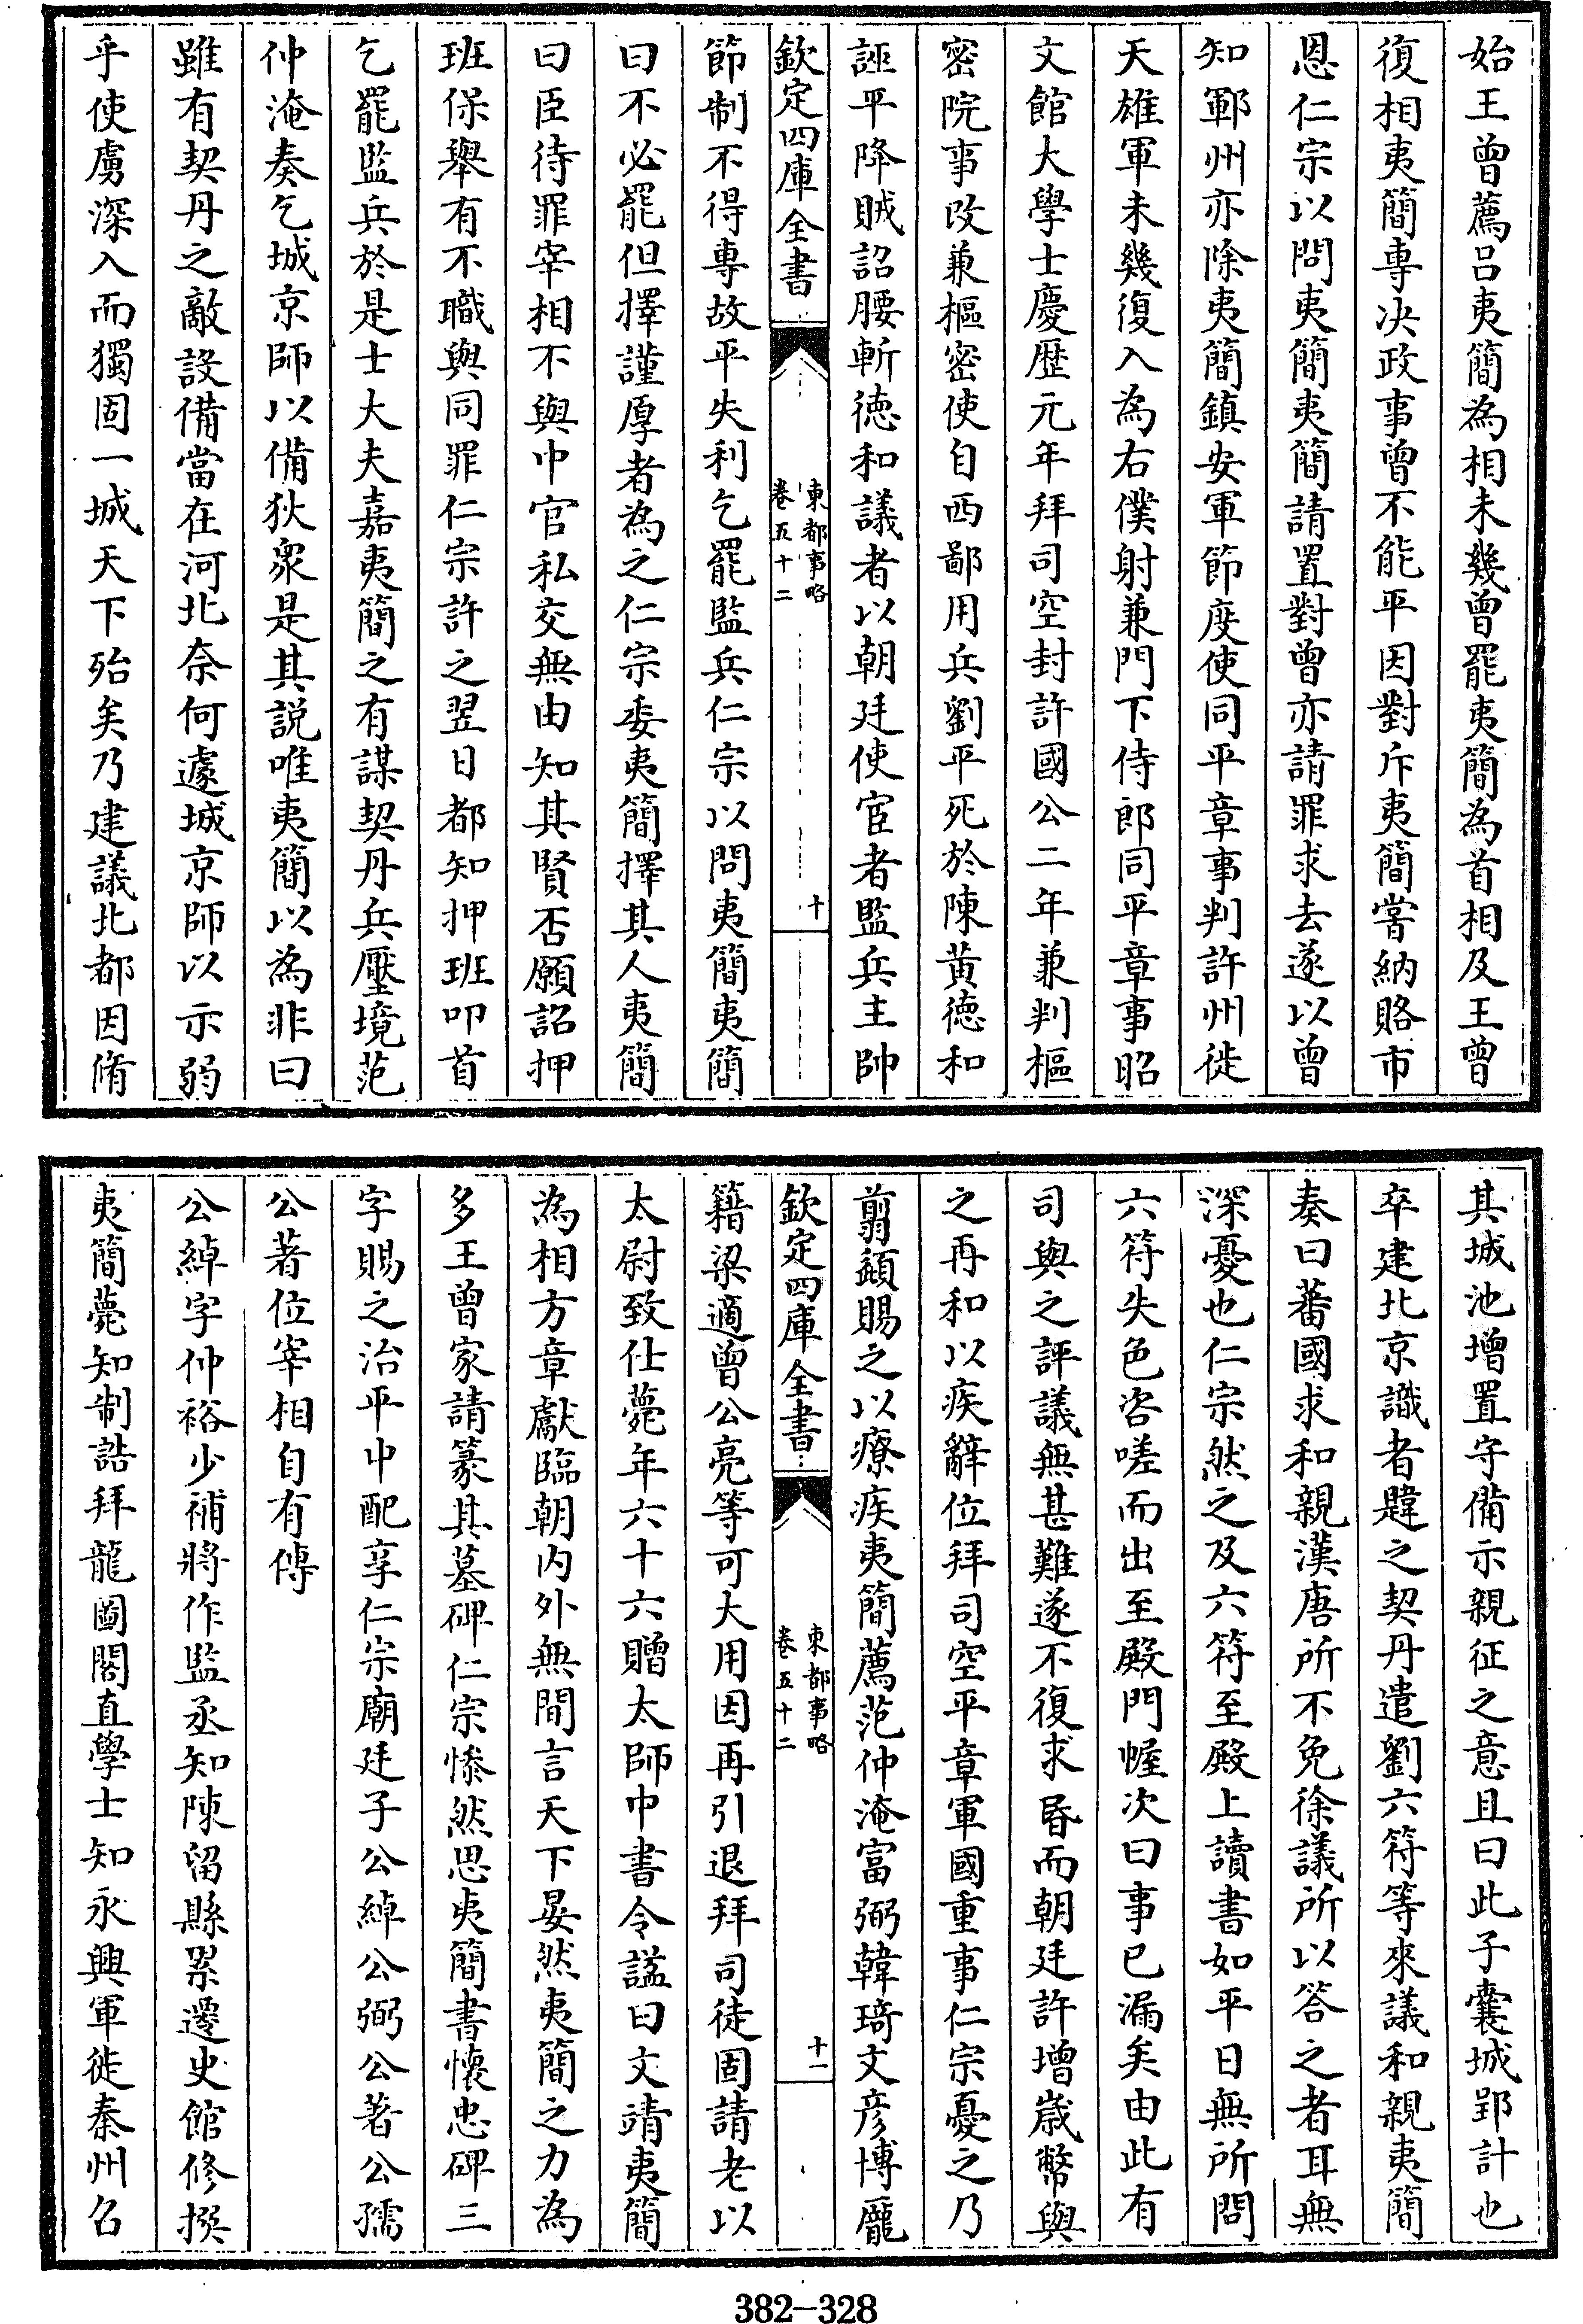 始王曾薦吕夷簡為相未幾曾罷夷簡為首相及王曾
復相夷簡專決政事曾不能平因對斥夷簡嘗納賂市
恩仁宗以問夷簡夷簡請置對曾亦請罪求去遂以曾
知鄆州亦除夷簡鎮安軍節度使同平章事判許州徙
天雄軍未幾復入為右僕射兼門下侍郎同平章事昭
文館大學士慶歴元年拜司空封許國公二年兼判樞
密院事改兼樞密使自西鄙用兵劉平死於陳黄徳和
誣平降賊詔腰斬徳和議者以朝廷使宦者監兵主帥
欽定四庫全書
東都事略
卷五十二
十
節制不得專故平失利乞罷監兵仁宗以問夷簡夷簡
曰不必罷但擇謹厚者為之仁宗委夷簡擇其人夷簡
曰臣待罪宰相不與中官私交無由知其賢否願詔押
班保舉有不職與同罪仁宗許之翌日都知押班叩首
乞罷監兵於是士大夫嘉夷簡之有謀契丹兵壓境范
仲淹奏乞城京師以備狄衆是其説唯夷簡以為非曰
雖有契丹之敵設備當在河北奈何遽城京師以示弱
乎使虜深入而獨固一城天下殆矣乃建議北都因脩
其城池增置守備示親征之意且曰此子囊城郢計也
卒建北京識者韙之契丹遣劉六符等來議和親夷簡
奏曰蕃國求和親漢唐所不免徐議所以答之者耳無
深憂也仁宗然之及六符至殿上讀書如平日無所問
六符失色咨嗟而出至殿門幄次曰事已漏矣由此有
司與之評議無甚難遂不復求昏而朝廷許增歲幣與
之再和以疾辭位拜司空平章軍國重事仁宗憂之乃
翦鬚賜之以療疾夷簡薦范仲淹富弼韓琦文彦博龐
欽定四庫全書
東都事略
卷五十二
十一
籍梁適曾公亮等可大用因再引退拜司徒固請老以
太尉致仕薨年六十六贈太師中書令諡曰文靖夷簡
為相方章獻臨朝内外無間言天下晏然夷簡之力為
多王曾家請篆其墓碑仁宗慘然思夷簡書懷忠碑三
字賜之治平中配享仁宗廟廷子公綽公弼公著公孺
公著位宰相自有傳
公綽字仲裕少補將作監丞知陳留縣累遷史館修撰
夷簡薨知制誥拜龍圖閣直學士知永興軍徙秦州召
382-328